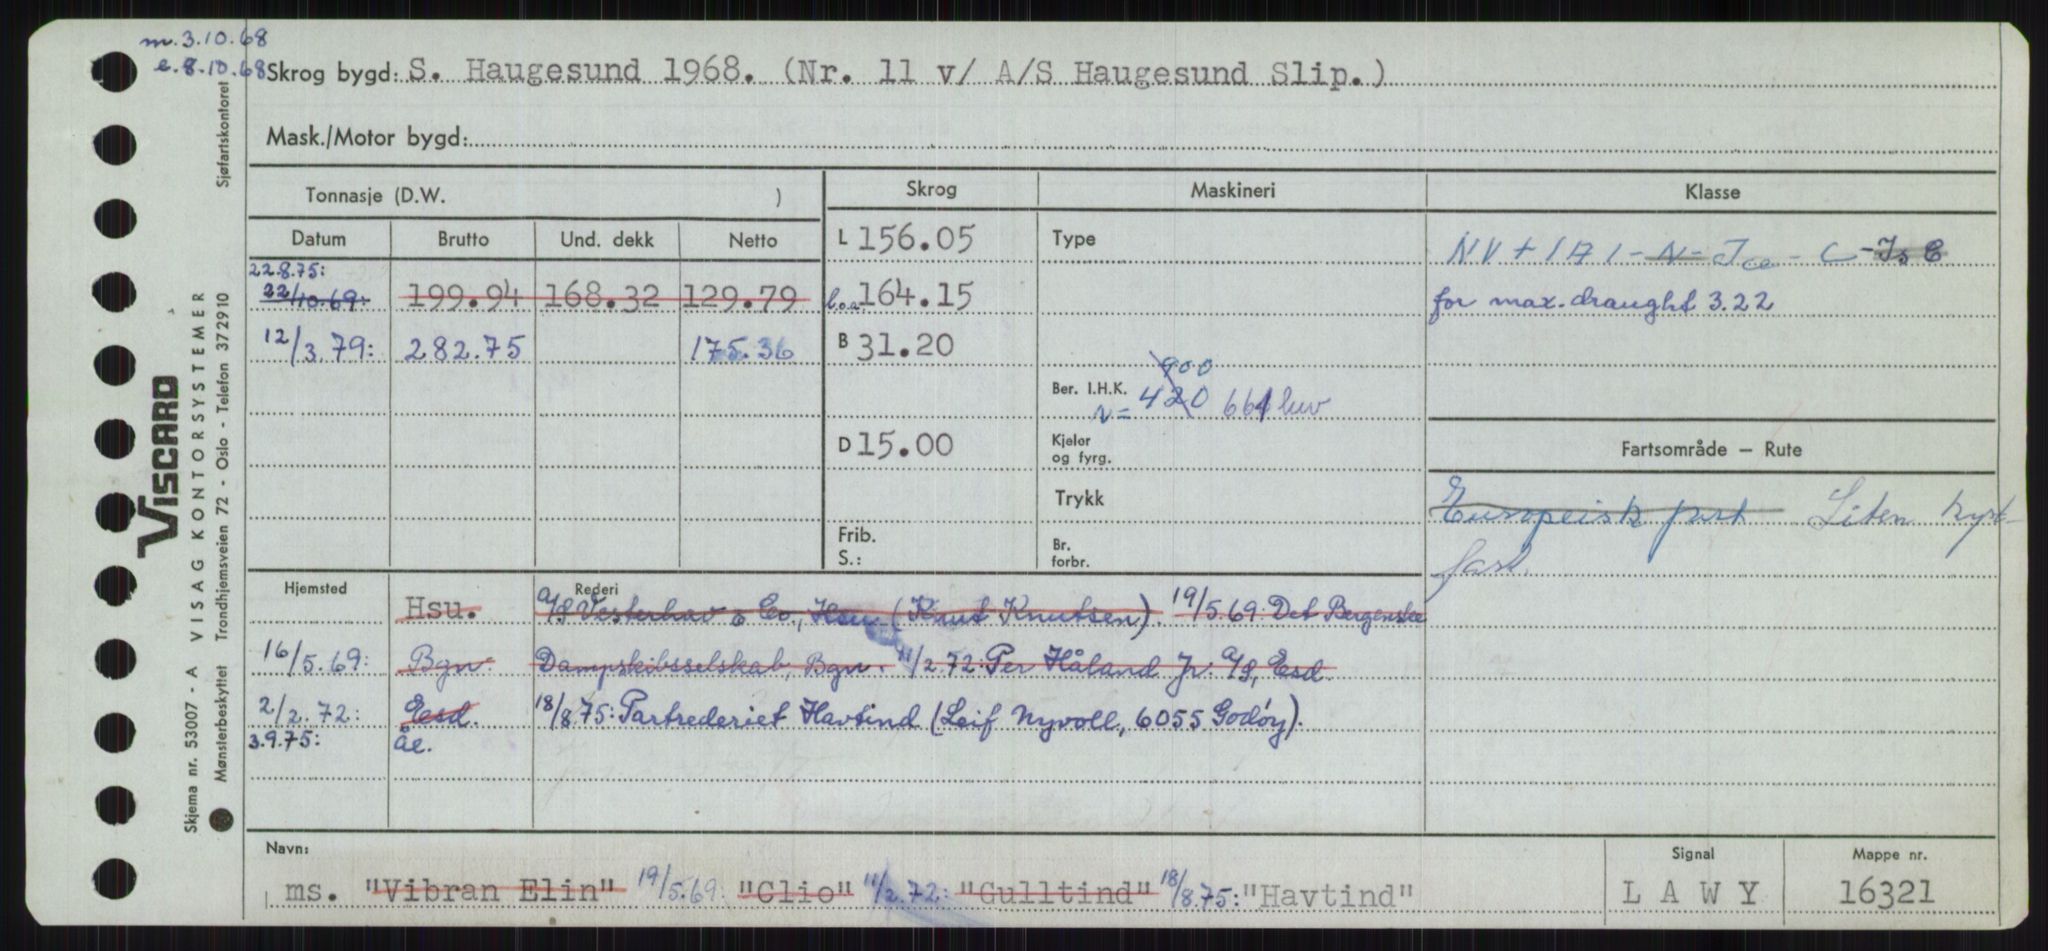 m. 3.10.68
e. 8.10.68 Skrog bygd: S. Haugesund 1968. (Nr. 11 v/ A/S Haugesund Slip.)
Mask./Motor bygd:
Tonnasje (D.W. )
Skrog
Maskineri
Klasse
Datum Brutto Und. dekk Netto
22.8.75:
22/10.69: 199.94 168.32 129.79
12/3.79: 282.75 175.36
L 156.05
l.o.a. 164.15
B 31.20
D 15.00
Frib.
S.:
Type
900
Ber. I.H.K. 420 661 hv
N=
Kjeler
og fyrg.
Trykk
Br.
forbr.
NV + 1A1 - N - Ice - C - Is C
for max. draught 3.22
Fartsområde – Rute
Europeisk fart Liten kyst-
fart.
Hjemsted Rederi
Hsu. A/S Vesterhav & Co., Hsu (Knut Knutsen). 19/5.69: Det Bergenske
16/5.69: Bgn. Dampskibsselskab, Bgn. 11/2.72: Per Håland Jr. A/S, Esd.
2/2.72: Esd. 18/8.75: Partrederiet Havtind (Leif Nyvoll, 6055 Godøy).
3.9.75: Åe.
Navn:
ms. "Vibran Elin" 19/5.69: "Clio" 11/2.72: "Gulltind" 18/8.75: "Havtind"
Signal
L A W Y
Mappe nr.
16321
VISCARD
Skjema nr. 53007 - A VISAG KONTORSYSTEMER
Mønsterbeskyttet Trondhjemsveien 72 - Oslo - Telefon 372910 Sjøfartskontoret